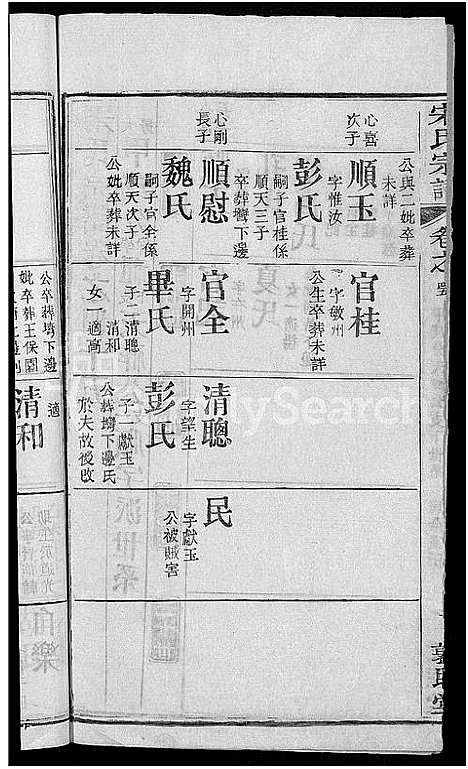 宋氏宗譜
卷之
公與二妣卒葬
未詳
心喜
次子
順玉
字惟汝
彭氏
嗣子官桂係
順天三子
卒葬塆下邊
心剛
長子
順慰
魏氏
嗣子官全係
順天次子
公妣卒葬未詳
官桂
字敏州
公生卒葬未詳
官全
字開州
畢氏
子二清聰
清和
女一適高
清聰
字望生
彭氏
子一獻玉
公葬塆下邊氏
於夫故後改
適
民
字獻玉
公被賊害
公卒葬塆下邊
妣卒葬王保園
清和